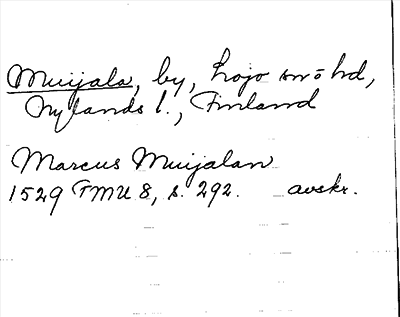 Muijala, by, Lojo sn o hd,
Nylands l., Finland
Marcus Muijalan
1529 TMU 8, s. 292. avskr.